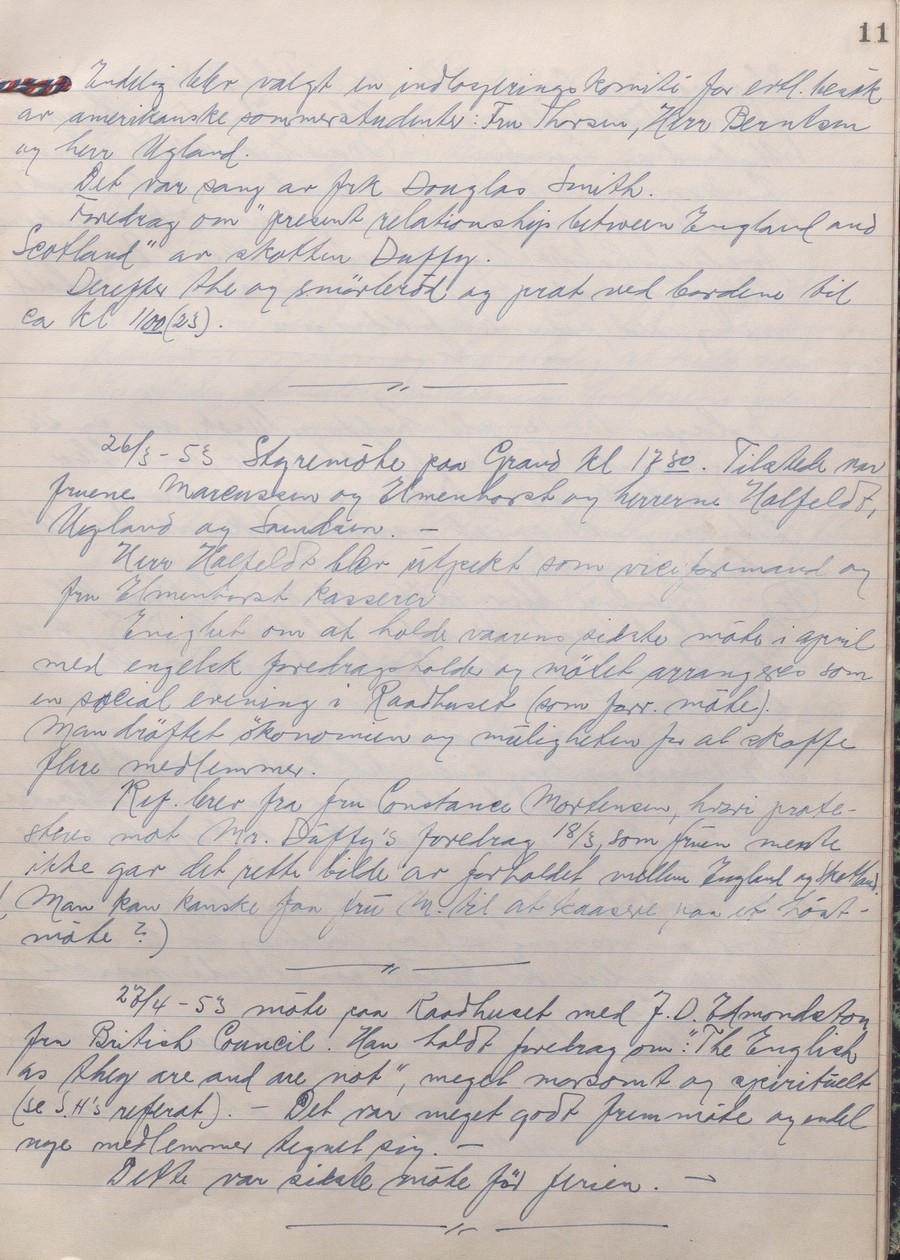 11
Endelig blev valgt en indlosjeringskomité for evtl. besøk
av amerikanske sommerstudenter: Fru Thorsen, Herr Berntsen
og herr Ugland.
Det var sang av frk Douglas Smith.
Foredrag om "present relationship between England and
Scotland" av skotten Duffy.
Derefter the og smörbröd og prat ved bordene til
ca kl 11⁰⁰ (23).
26/3 - 53 Styremöte paa Grand kl 17³⁰. Tilstede var
fruene Marcussen og Elmenhorst og herrerne Halfeldt,
Ugland og
Herr Halfeldt blev utpekt som viceformand og
fru Elmenhorst kasserer
Enighet om at holde vaarens sidste möte i april
med engelsk foredragsholder og mötet arrangeres som
en social evening i Raadhuset (som forr. möte).
Man dröftet ökonomien og muligheten for at skaffe
flere medlemmer.
Ref. brev fra fru Constance Mortensen, hvori prote-
steres mot Mr. Duffy's foredrag 18/3, som fruen mente
ikke gav det rette bilde av forholdet mellem England og Skotland.
(Man kan kanske faa fru M. til at kaasere paa et höst-
möte?)
27/4 - 53 möte paa Raadhuset med J. D. Edmondston
fra British Council. Han holdt foredrag om: "The English
as they are and are not", meget morsomt og spirituelt
(se S.H's referat). - Det var meget godt fremmöte og endel
nye medlemmer tegnet sig. -
Dette var sidste möte för ferien. -